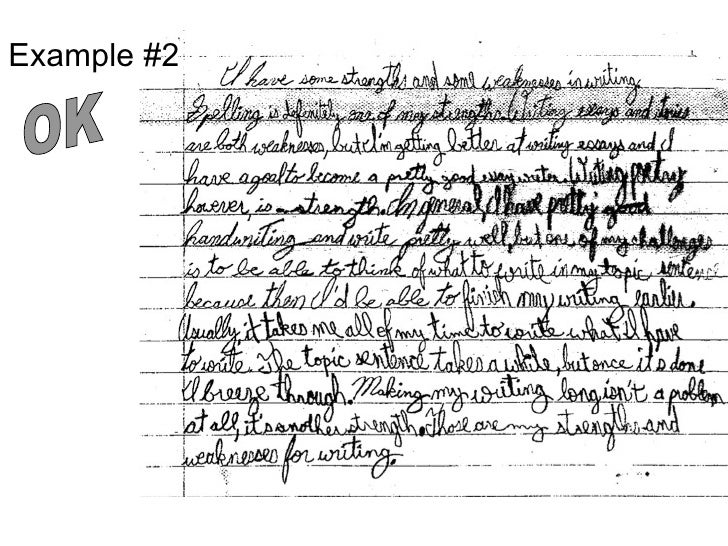 Example #2
OK
I have some strengths and some weaknesses in writing.
Spelling is definitely one of my strengths. Writing essays and stories
are both weaknesses, but I'm getting better at writing essays and I
have a goal to become a pretty good essay writer. Writing poetry
however, is a strength. In general, I have pretty good
handwriting and write pretty well, but one of my challenges
is to be able to think of what to write in my topic sentence
because then I'd be able to finish my writing earlier.
Usually, it takes me all of my time to write what I have
to write. The topic sentence takes a while, but once it's done
I breeze through. Making my writing long isn't a problem
at all, it's another strength. Those are my strengths and
weaknesses for writing.